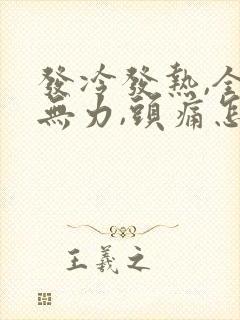 發冷發熱,全
無力,頭痛怎
王羲之